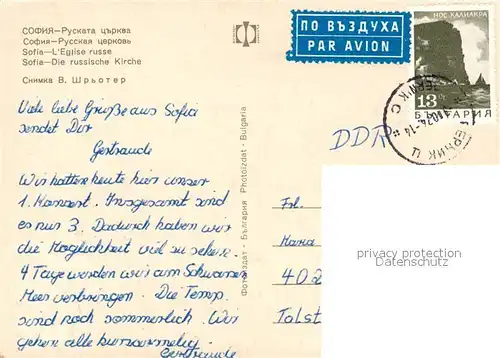 СОФИЯ—Руската църква
София—Русская церковь
Sofia—L'Eglise russe
Sofia—Die russische Kirche
Снимка В. Шрьотер
ПО ВЪЗДУХА
PAR AVION
НОС КАЛИАКРА
13
БЪЛГАРИЯ
Viele liebe Grüße aus Sofia
sendet Dir
Gertraude
Wir hatten heute hier unser
1. Konzert. Insgesamt sind
es nur 3. Dadurch haben wir
die Möglichkeit viel zu sehen.
4 Tage werden wir am Schwarzen
Meer verbringen. Die Temp.
sind noch sommerlich. Wir
gehen alle kurzärmelig.
Gertraude
Фотоиздат - България Photoizdat - Bulgaria
DDR
Frl.
Hana
402
Talst
privacy protection
Datenschutz